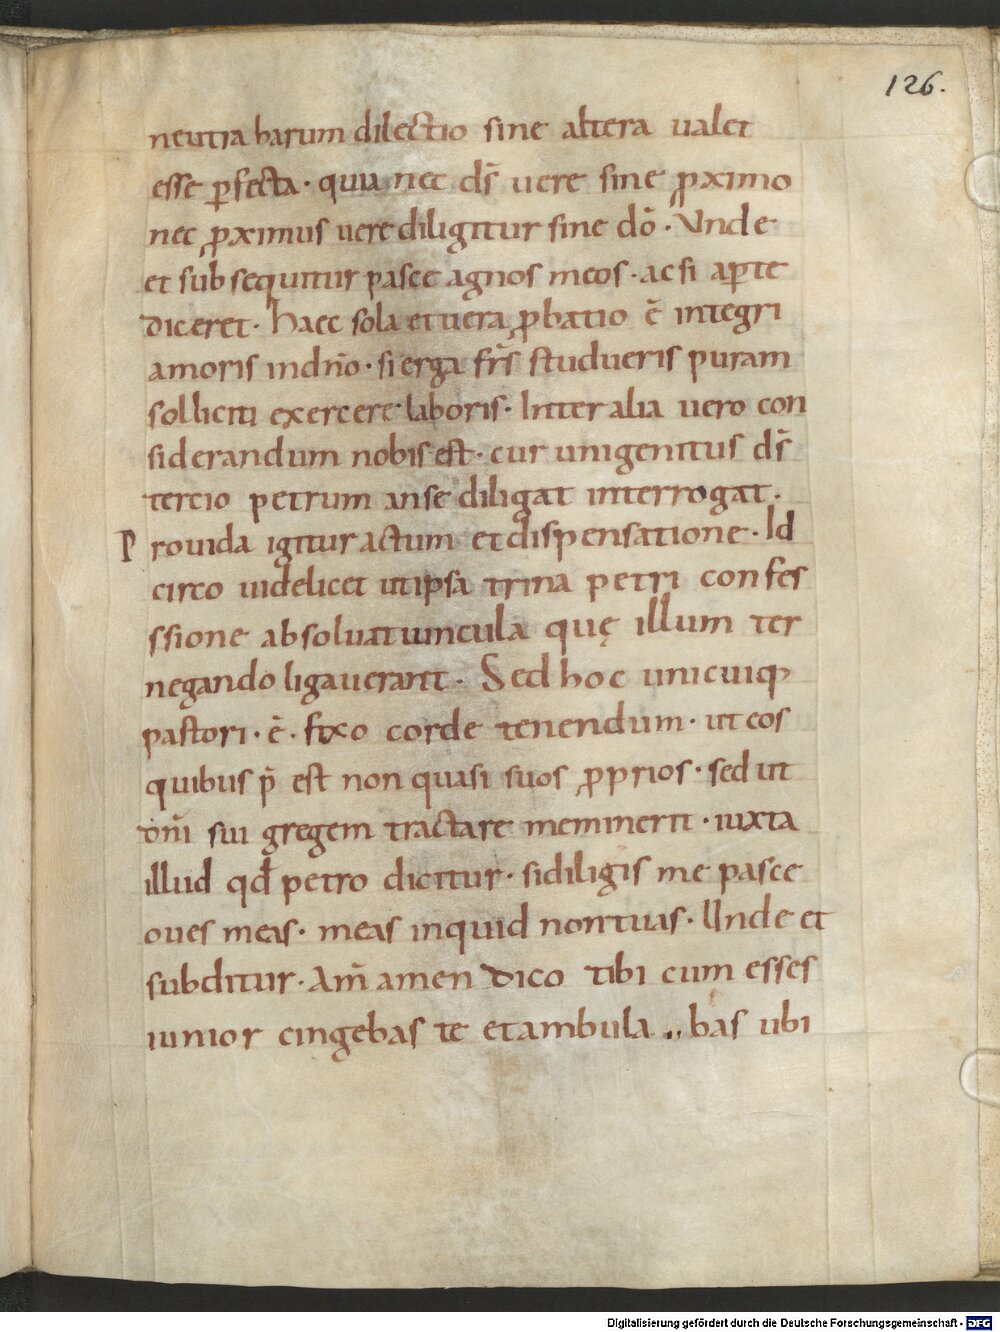 126.
neutra harum dilectio sine altera ualet
esse p̱fecta· quia nec ds̄ uere sine ꝓximo
nec ꝓximus uere diligitur sine dō· Unde
et subsequitur pasce agnos meos· ac si ap̱te
diceret· haec sola et uera ꝓbatio ē integri
amoris in dn̄o· si erga frs̄ studueris puram
solliciti exercere laboris· Inter alia uero con
siderandum nobis est· cur unigenitus ds̄
tercio petrum an se diligat interrogat·
Prouida igitur actum et dispensatione· Id
circo uidelicet ut ipsa trina petri confes
ssione absoluat uincula quę illum ter
negando ligauerant· Sed hoc unicuiqꝫ
pastori· ē· fixo corde tenendum· ut eos
quibus p̄ est non quasi suos ꝓprios· sed ut
dn̄i sui gregem tractare meminerit· iuxta
illud qđ petro dicitur· si diligis me pasce
oues meas· meas inquid non tuas· Unde et
subditur· Am̄ amen dico tibi cum esses
iunior cingebas te et ambula..bas ubi
Digitalisierung gefördert durch die Deutsche Forschungsgemeinschaft - DFG